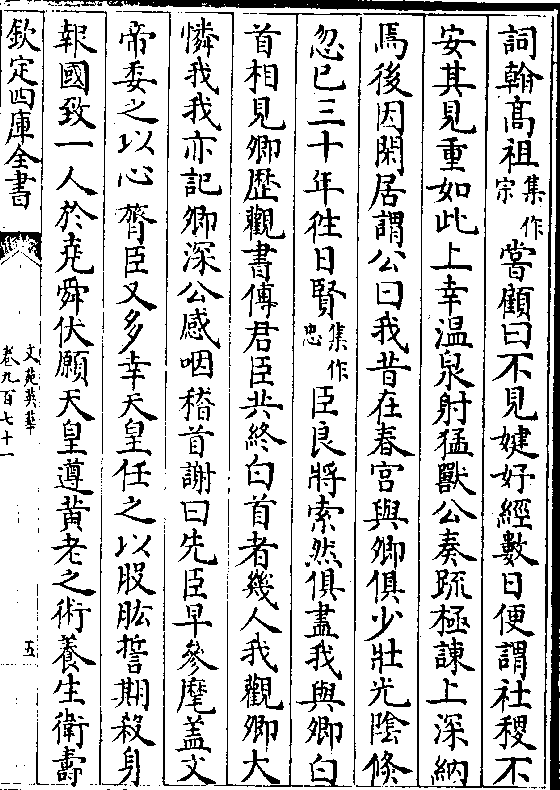 詞翰高祖集作宗嘗顧曰不見婕妤經數日便謂社稷不
安其見重如此上幸温泉射猛獸公奏疏極諫上深納
焉後因閑居謂公曰我昔在春宮與卿俱少壯光陰倐
忽已三十年徃日賢集作忠臣良將索然俱盡我與卿白
首相見卿歴觀書傳君臣共終白首者幾人我觀卿大
憐我我亦記卿深公感咽稽首謝曰先臣早參麾盖文
帝委之以心膂臣又多幸天皇任之以股肱誓期殺身
報國致一人於堯舜伏願天皇遵黄老之術養生衛壽
欽定四庫全書
文苑英華
卷九百七十一
五